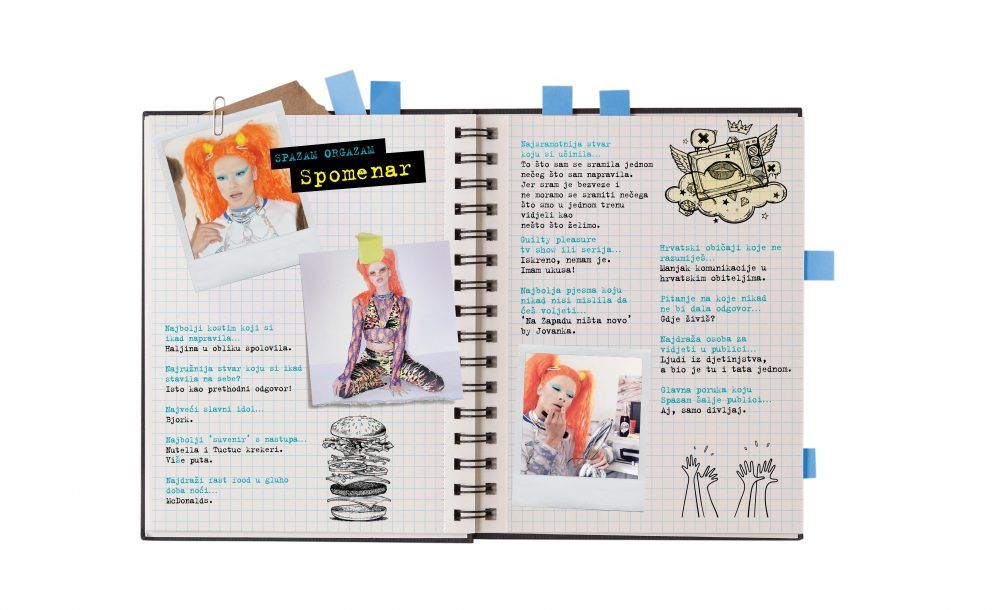 SPAZAM ORGAZAM
Spomenar
Najbolji kostim koji si
ikad napravila…
Haljina u obliku spolovila.
Najružnija stvar koju si ikad
stavila na sebe?
Isto kao prethodni odgovor!
Najveći slavni idol…
Bjork.
Najbolji 'suvenir' s nastupa…
Nutella i Tuctuc krekeri.
Više puta.
Najdraži fast food u gluho
doba noći…
McDonalds.
Najsramotnija stvar
koju si učinila…
To što sam se sramila jednom
nečeg što sam napravila.
Jer sram je bezveze i
ne moramo se sramiti nečega
što smo u jednom trenu
vidjeli kao
nešto što želimo.
Guilty pleasure
tv show ili serija…
Iskreno, neman je.
Imam ukusa!
Najbolja pjesma koju
nikad nisi mislila da
ćeš voljeti…
'Na Zapadu ništa novo'
by Jovanka.
Hrvatski običaji koje ne
razumiješ…
Manjak komunikacije u
hrvatskim obiteljima.
Pitanje na koje nikad
ne bi dala odgovor…
Gdje živiš?
Najdraža osoba za
vidjeti u publici…
Ljudi iz djetinjstva,
a bio je tu i tata jednom.
Glavna poruka koju
Spazam šalje publici…
Aj, samo divljaj.